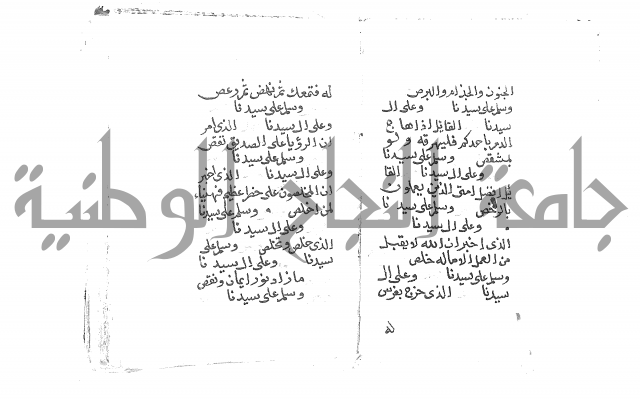 الجنون والجذام والبرص
وسلم على سيدنا وعلى ال
سيدنا القائل اذا هاج
الدم باحدكم فليهرقه ولو
بمشقص وسلم على سيدنا
وعلى ال سيدنا القا
ئل افضل امتي الذين يعملون
بالرخص وسلم على سيدنا
وعلى ال سيدنا
الذي اخبر ان الله لا يقبل
من العمل الا ما له خلص
وسلم على سيدنا وعلى ال
سيدنا الذي خرج بفرس
له
له فتمعك ثم نهض ثم رعص
وسلم على سيدنا
وعلى ال سيدنا الذي امر
ان الرؤيا على الصديق تقص
وسلم على سيدنا
وعلى ال سيدنا الذي اخبر
ان المخلصون على خطر عظيم
لمن اخلص وسلم على سيدنا
وعلى ال سيدنا
الذي خلص وتخلص وسلم على
سيدنا وعلى ال سيدنا
ما زاد نور ايمان ونقص
وسلم على سيدنا
جامعة النجاح الوطنية